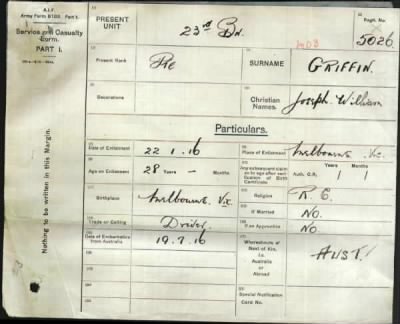 A.I.F.
Army Form B103. Part I.
Service and Casualty
Form.
PART I.
Nothing to be written in this Margin.
PRESENT
UNIT
23rd Bn.
Regtl. No.
5026.
Present Rank
Pte
SURNAME
GRIFFIN.
Decorations
Christian
Names
Joseph William
Particulars.
Date of Enlistment
22.1.16
Place of Enlistment
Melbourne. Vic.
Age on Enlistment
28 Years – Months
Any subsequent claim
as to age after veri-
fication of Birth
Certificate
Auth. C.R.
Birthplace
Melbourne Vic.
Religion
R.C.
If Married
NO.
Trade or Calling
Driver.
If an Apprentice
No.
Date of Embarkation
from Australia
19.7.16
Whereabouts of
Next of Kin,
i.e.
Australia
or
Abroad
AUST.
Special Notification
Card No.